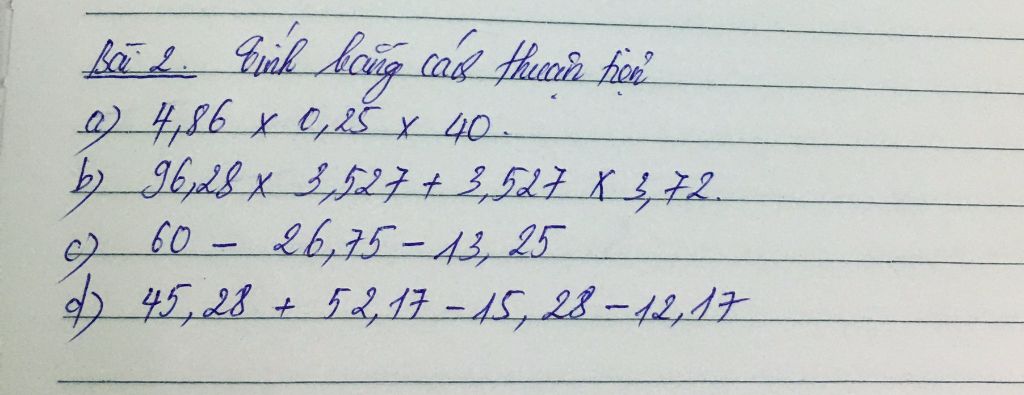 Bài 2. Tính bằng cách thuận tiện
a) 4,86 x 0,25 x 40.
b) 96,28 x 3,527 + 3,527 x 3,72.
c) 60 - 26,75 - 13,25
d) 45,28 + 52,17 - 15,28 - 12,17